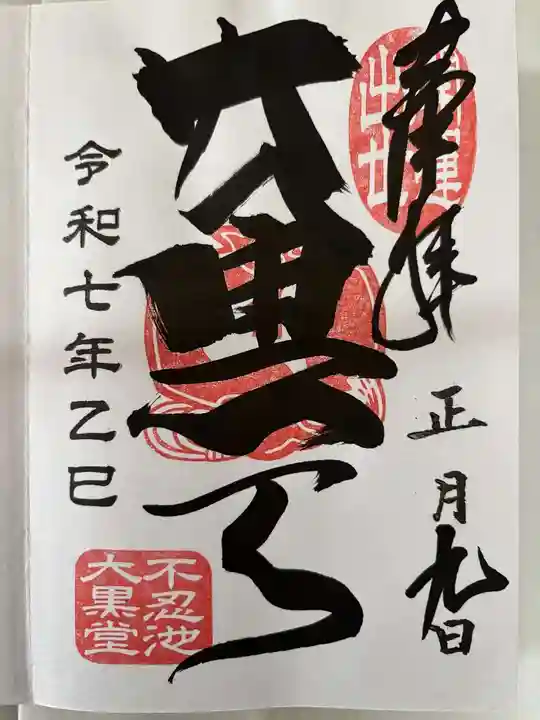 奉拝
正月九日
開運
出世
大黒天
令和七年乙巳
不忍池
大黒堂